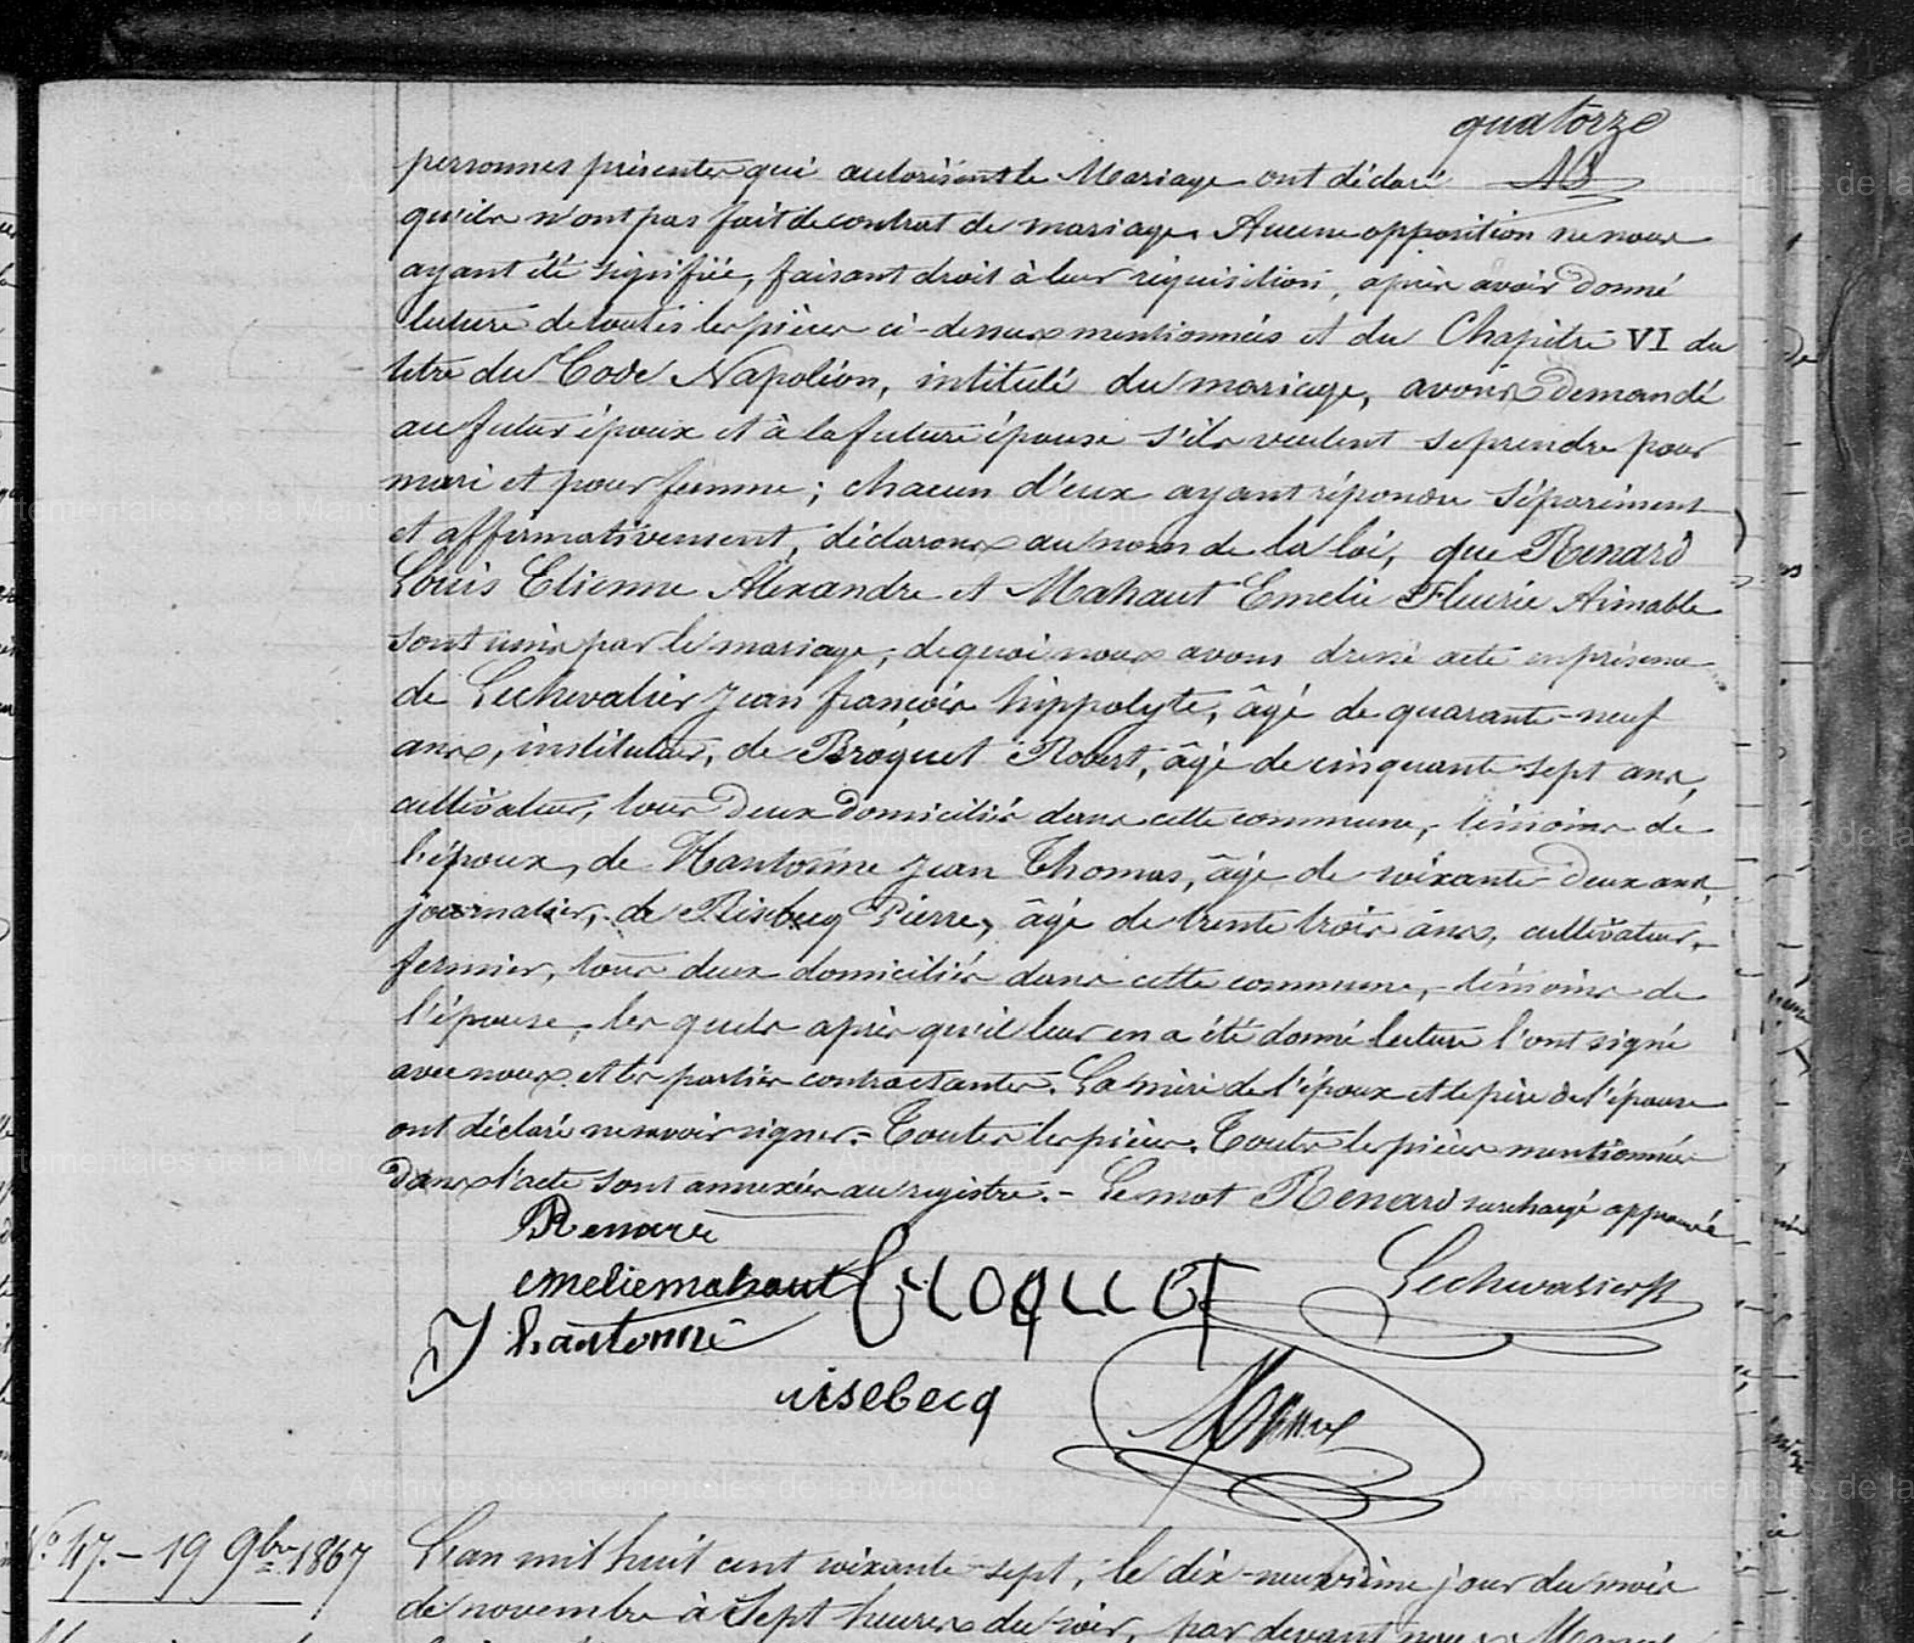 quatorze
personnes présentes qui autorisent le Mariage ont déclaré
qu'ils n'ont pas fait de contrat de mariage. Aucune opposition ne nous
ayant été signifiée, faisant droit à leur réquisition, après avoir donné
lecture de toutes les pièces ci-dessus mentionnées et du Chapitre VI du
titre du Code Napoléon, intitulé du mariage, avons demandé
au futur époux et à la future épouse s'ils veulent se prendre pour
mari et pour femme ; chacun d'eux ayant répondu séparément
et affirmativement, déclarons au nom de la loi, que Renard
Louis Etienne Alexandre et Mahaut Emelie Fleurie Aimable
sont unis par le mariage ; de quoi nous avons dressé acte en présence
de Lechevalier Jean françois hippolyte, âgé de quarante-neuf
ans, instituteur, de Broquet Robert, âgé de cinquante sept ans,
cultivateur, tous deux domiciliés dans cette commune, témoins de
l'époux, de Hantonne Jean Thomas, âgé de soixante-deux ans,
journalier, de Risebecq Pierre, âgé de trente trois ans, cultivateur,
fermier, tous deux domiciliés dans cette commune, témoins de
l'épouse, les quels après qu'il leur en a été donné lecture l'ont signé
avec nous et les parties contractantes. La mère de l'époux et le père de l'épouse
ont déclaré ne savoir signer. - Toutes les pièces. Toutes les pièces mentionnées
dans l'acte sont annexées au registre. - Le mot Renard surchargé approuvé
Renard
emelie mahaut
Lechevalier
J hantonne
risebecq
No 47. - 19 9bre 1867
L'an mil huit cent soixante-sept, le dix-neuvième jour du mois
de novembre à sept heures du soir, par devant nous
Archives départementales de la Manche